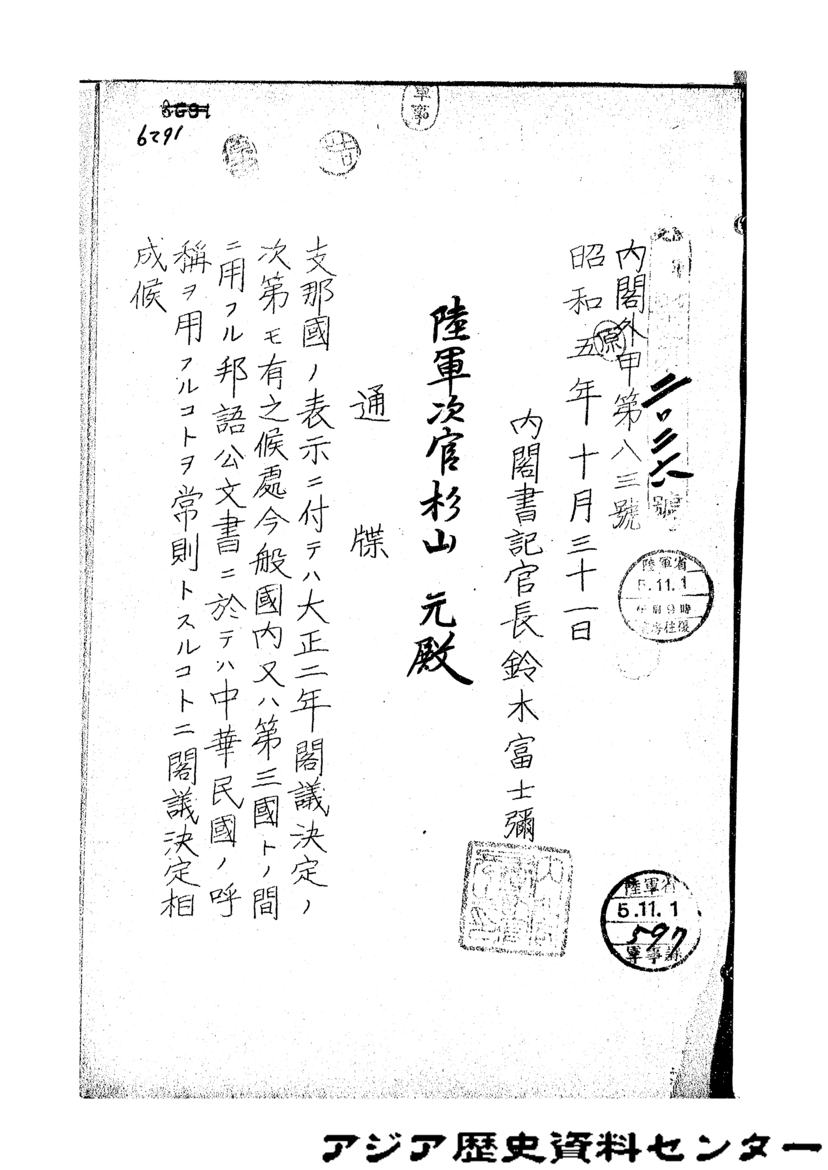 二〇二六
號
内閣外甲第八三號
昭和五年十月三十一日
原
内閣書記官長鈴木富士彌
陸軍次官杉山元殿
通牒
支那國ノ表示ニ付テハ大正二年閣議決定ノ
次第モ有之候處今般國内又ハ第三國トノ間
ニ用フル邦語公文書ニ於テハ中華民國ノ呼
稱ヲ用フルコトヲ常則トスルコトニ閣議決定相
成候
陸軍省
5.11.1
陸軍省
5.11.1
597
軍事課
軍事
6291
アジア歴史資料センター